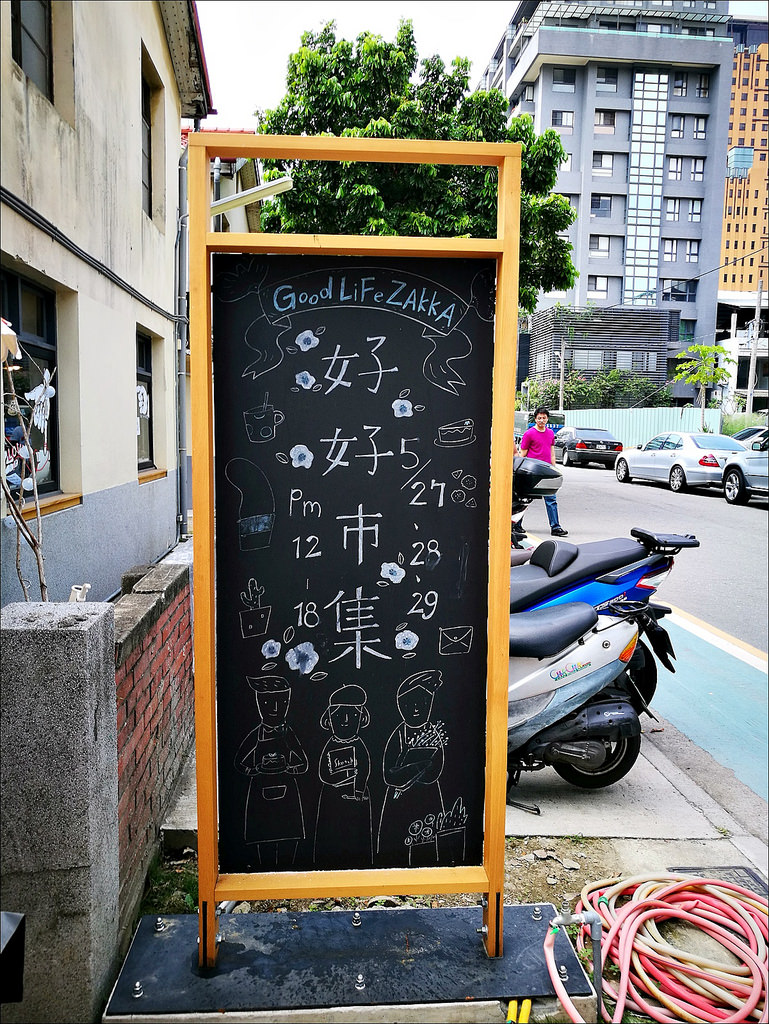 Good LiFe ZAKKA
好好市集
5/27、28、29
Pm 12-18
Sketch